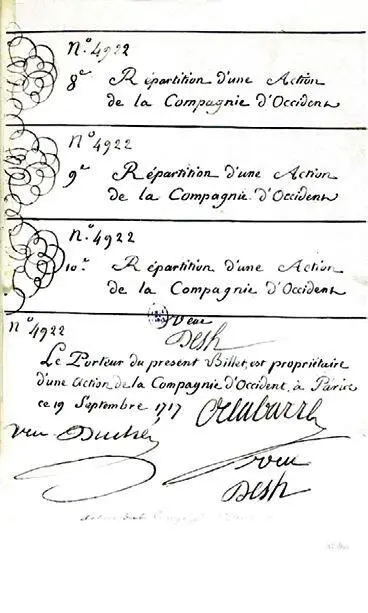 N.° 4922
8.e Répartition d'une Action
de la Compagnie d'Occident
N.° 4922
9.e Répartition d'une Action
de la Compagnie d'Occident
N.° 4922
10.e Répartition d'une Action
de la Compagnie d'Occident
N.° 4922
Veu
Desh
Le Porteur du present Billet est propriétaire
d'une Action de la Compagnie d'Occident, à Paris
ce 19 Septembre 1717
veu
veu
Desh